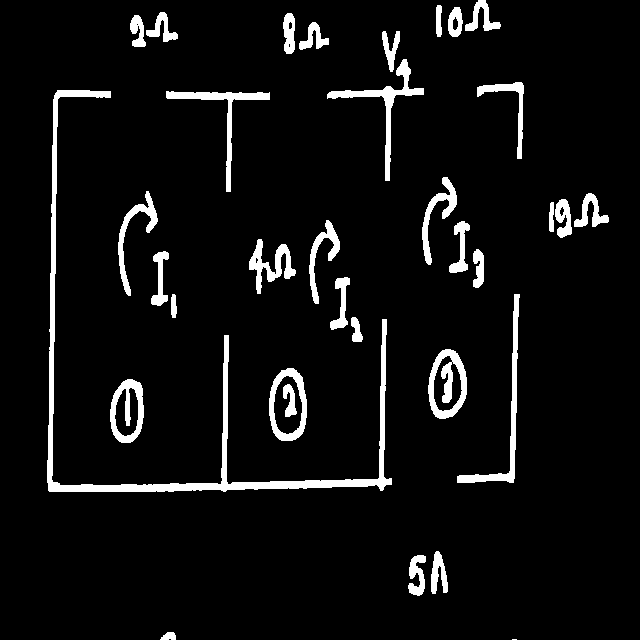 2Ω 8Ω V₁ 10Ω
19Ω
I₁ 4Ω I₂ I₃
① ② ③
5A